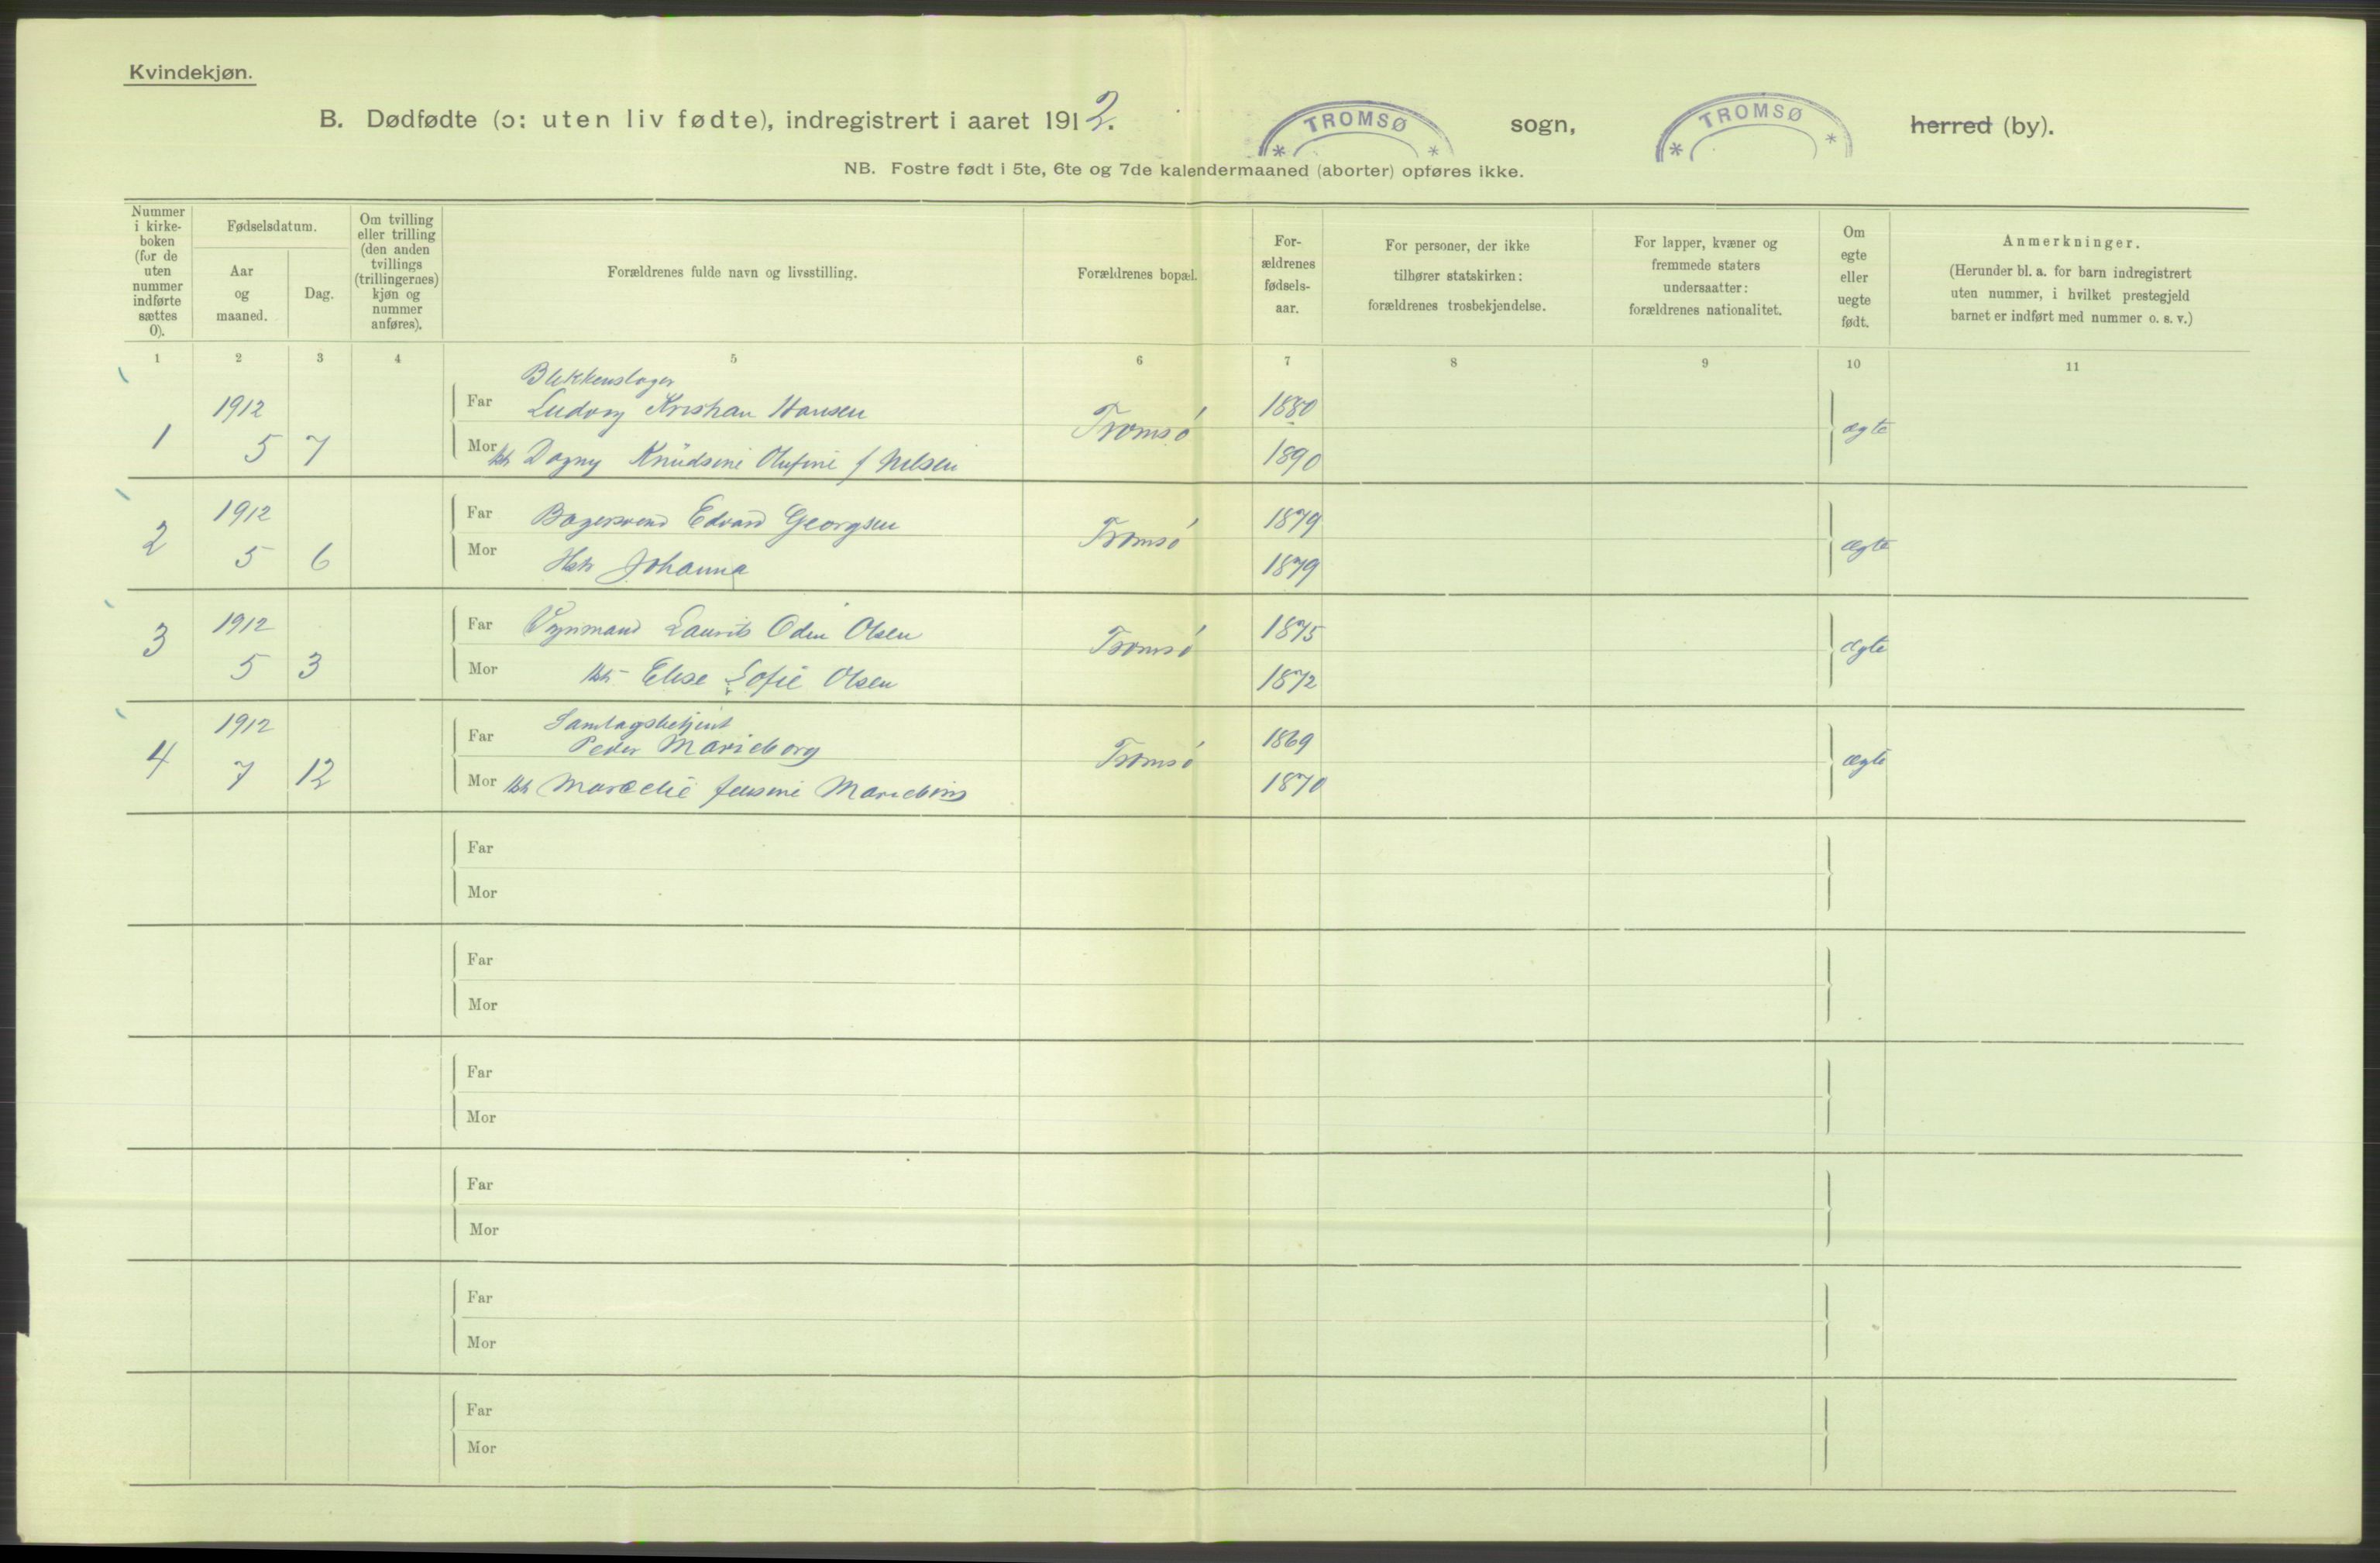 Kvindekjøn.
B. Dødfødte (ɔ: uten liv fødte), indregistrert i aaret 1912.
TROMSØ
sogn,
TROMSØ
herred (by).
NB. Fostre født i 5te, 6te og 7de kalendermaaned (aborter) opføres ikke.
Nummer
i kirke-
boken
(for de
uten
nummer
indførte
sættes
0).
Fødselsdatum.
Aar
og
maaned.
Dag.
Om tvilling
eller trilling
(den anden
tvillings
(trillingernes)
kjøn og
nummer
anføres).
Forældrenes fulde navn og livsstilling.
Forældrenes bopæl.
For-
ældrenes
fødsels-
aar.
For personer, der ikke
tilhører statskirken:
forældrenes trosbekjendelse.
For lapper, kvæner og
fremmede staters
undersaatter:
forældrenes nationalitet.
Om
egte
eller
uegte
født.
Anmerkninger.
(Herunder bl. a. for barn indregistrert
uten nummer, i hvilket prestegjeld
barnet er indført med nummer o. s. v.)
1 2 3 4 5 6 7 8 9 10 11
Blikkenslager
1912 Far Ludvig Kristian Hansen 1880
1 5 7 Tromsø ægte
Mor Dagny Knudsine Olufine f Nilsen 1890
1912 Far Bagersvend Edvard Georgsen 1879
2 5 6 Tromsø ægte
Mor Hst Johanna 1879
1912 Far Laurits Odin Olsen 1875
3 5 3 Tromsø ægte
Mor Hst Elise Sofie Olsen 1872
1912 Samlagsbetjent
Far Peder Marieborg 1869
4 7 12 Tromsø ægte
Mor Hst Jensine 1870
Far
Mor
Far
Mor
Far
Mor
Far
Mor
Far
Mor
Far
Mor